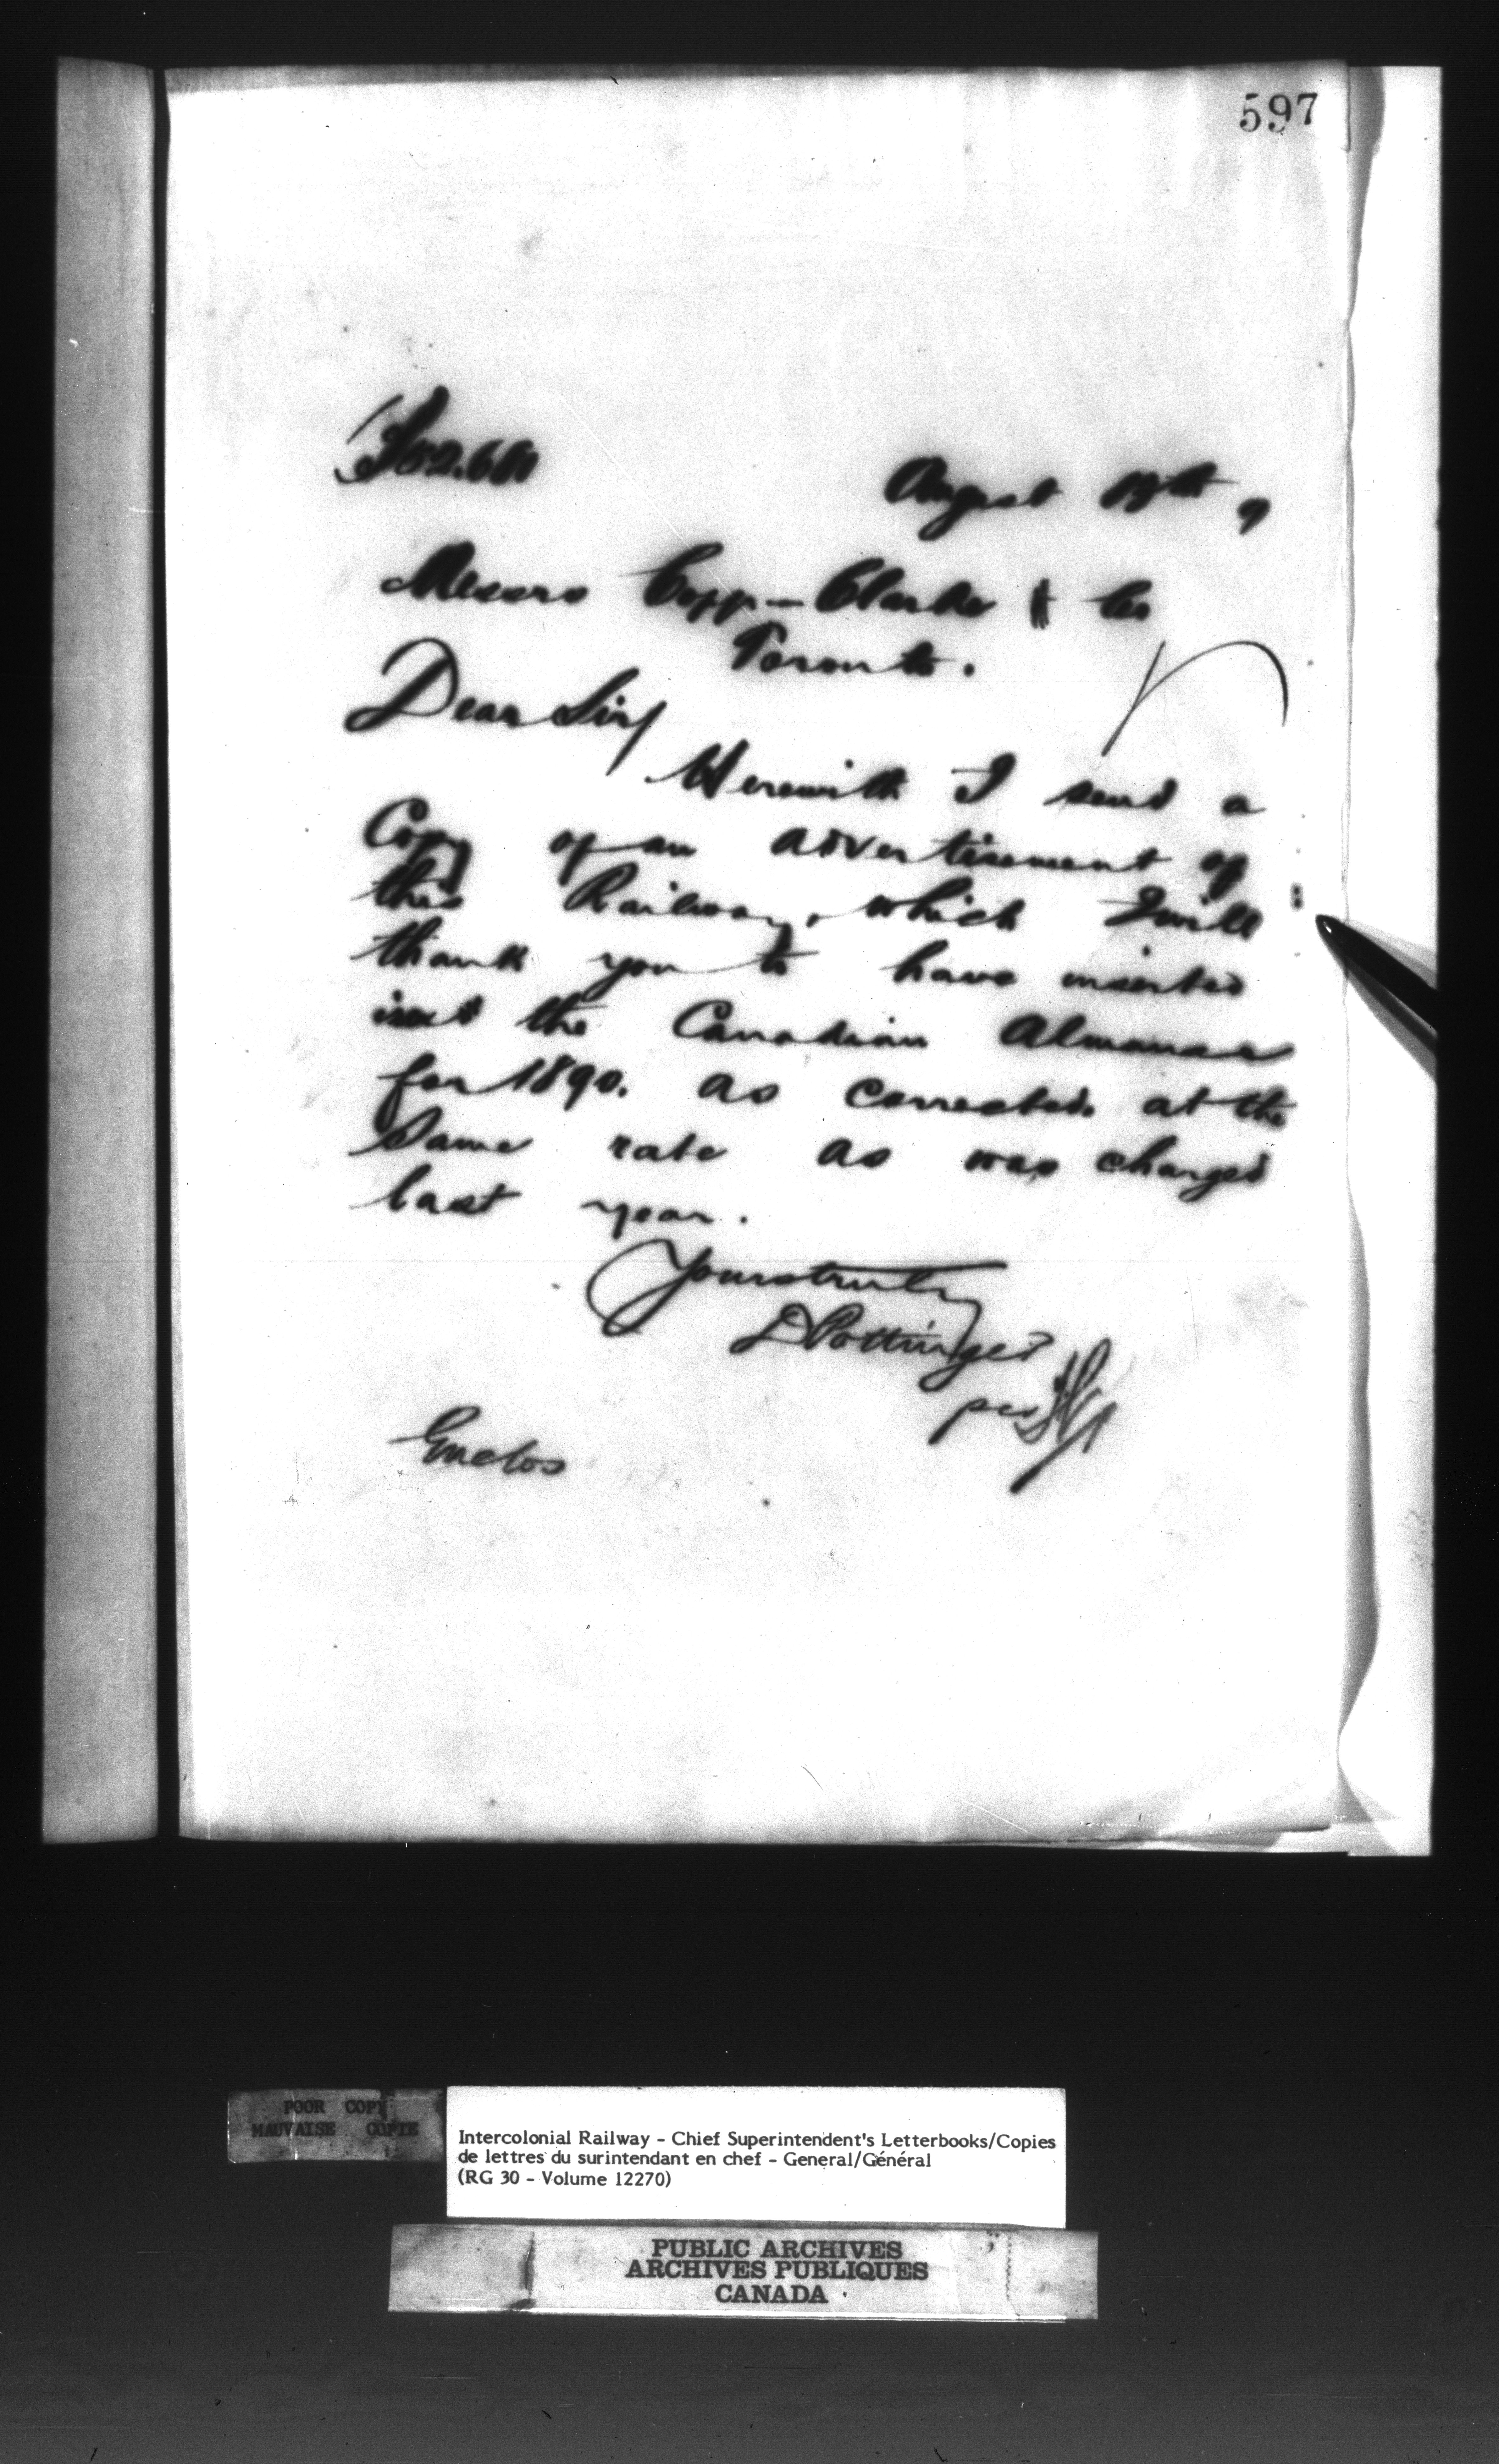 597
August 13th 9
Messrs Copp-Clarke & Co
Toronto.
Dear Sirs
Herewith I send a
Copy of an advertisement of
this Railway, which I will
thank you to have inserted
the Canadian Almanac
for 1890. as corrected at the
Same rate as was charged
last year.
Yours truly
D Pottinger
per
Enclos
POOR COPY
MAUVAISE COPIE
Intercolonial Railway - Chief Superintendent's Letterbooks/Copies
de lettres du surintendant en chef - General/Général
(RG 30 - Volume 12270)
PUBLIC ARCHIVES
ARCHIVES PUBLIQUES
CANADA